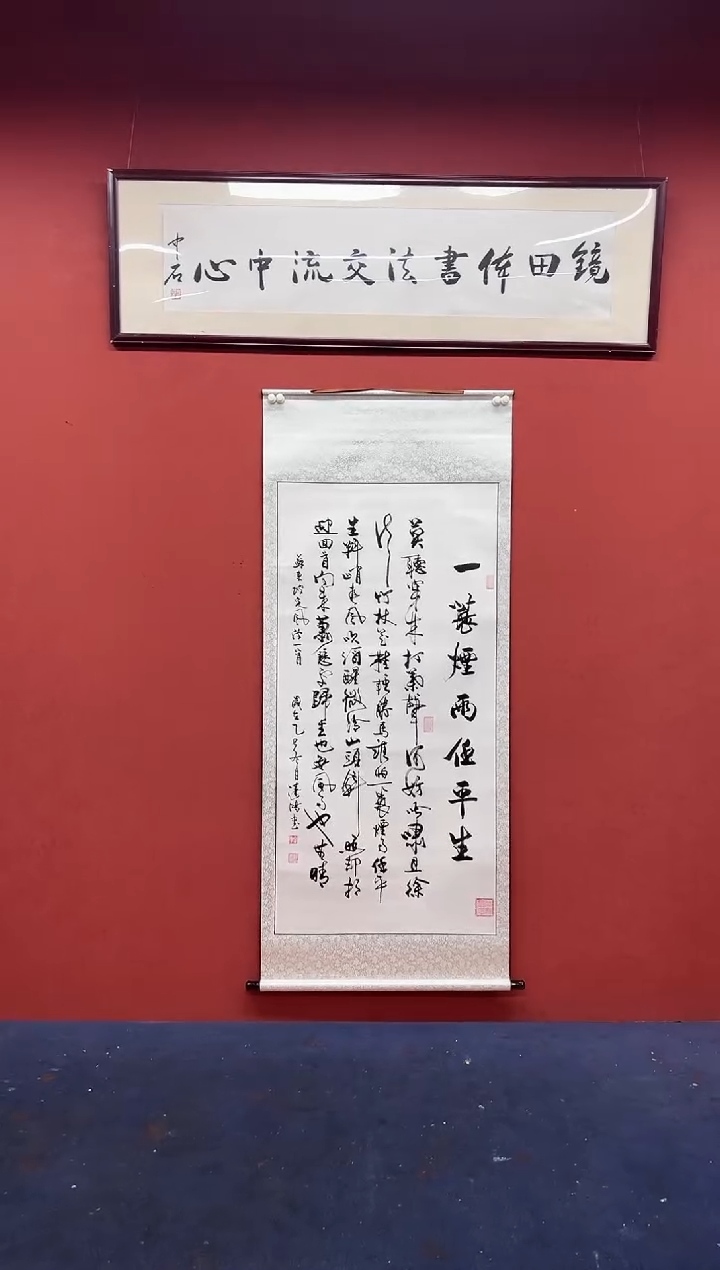 鏡田体書法交流中心
中石
一蓑煙雨任平生
莫聽穿林打葉聲何妨吟嘯且徐
行竹杖芒鞋輕勝馬誰怕一蓑煙雨任平
生料峭春風吹酒醒微冷山頭斜照却相
迎回首向來蕭瑟處歸去也無風雨也無晴
蘇東坡定風波一首 歲在乙巳冬月 書